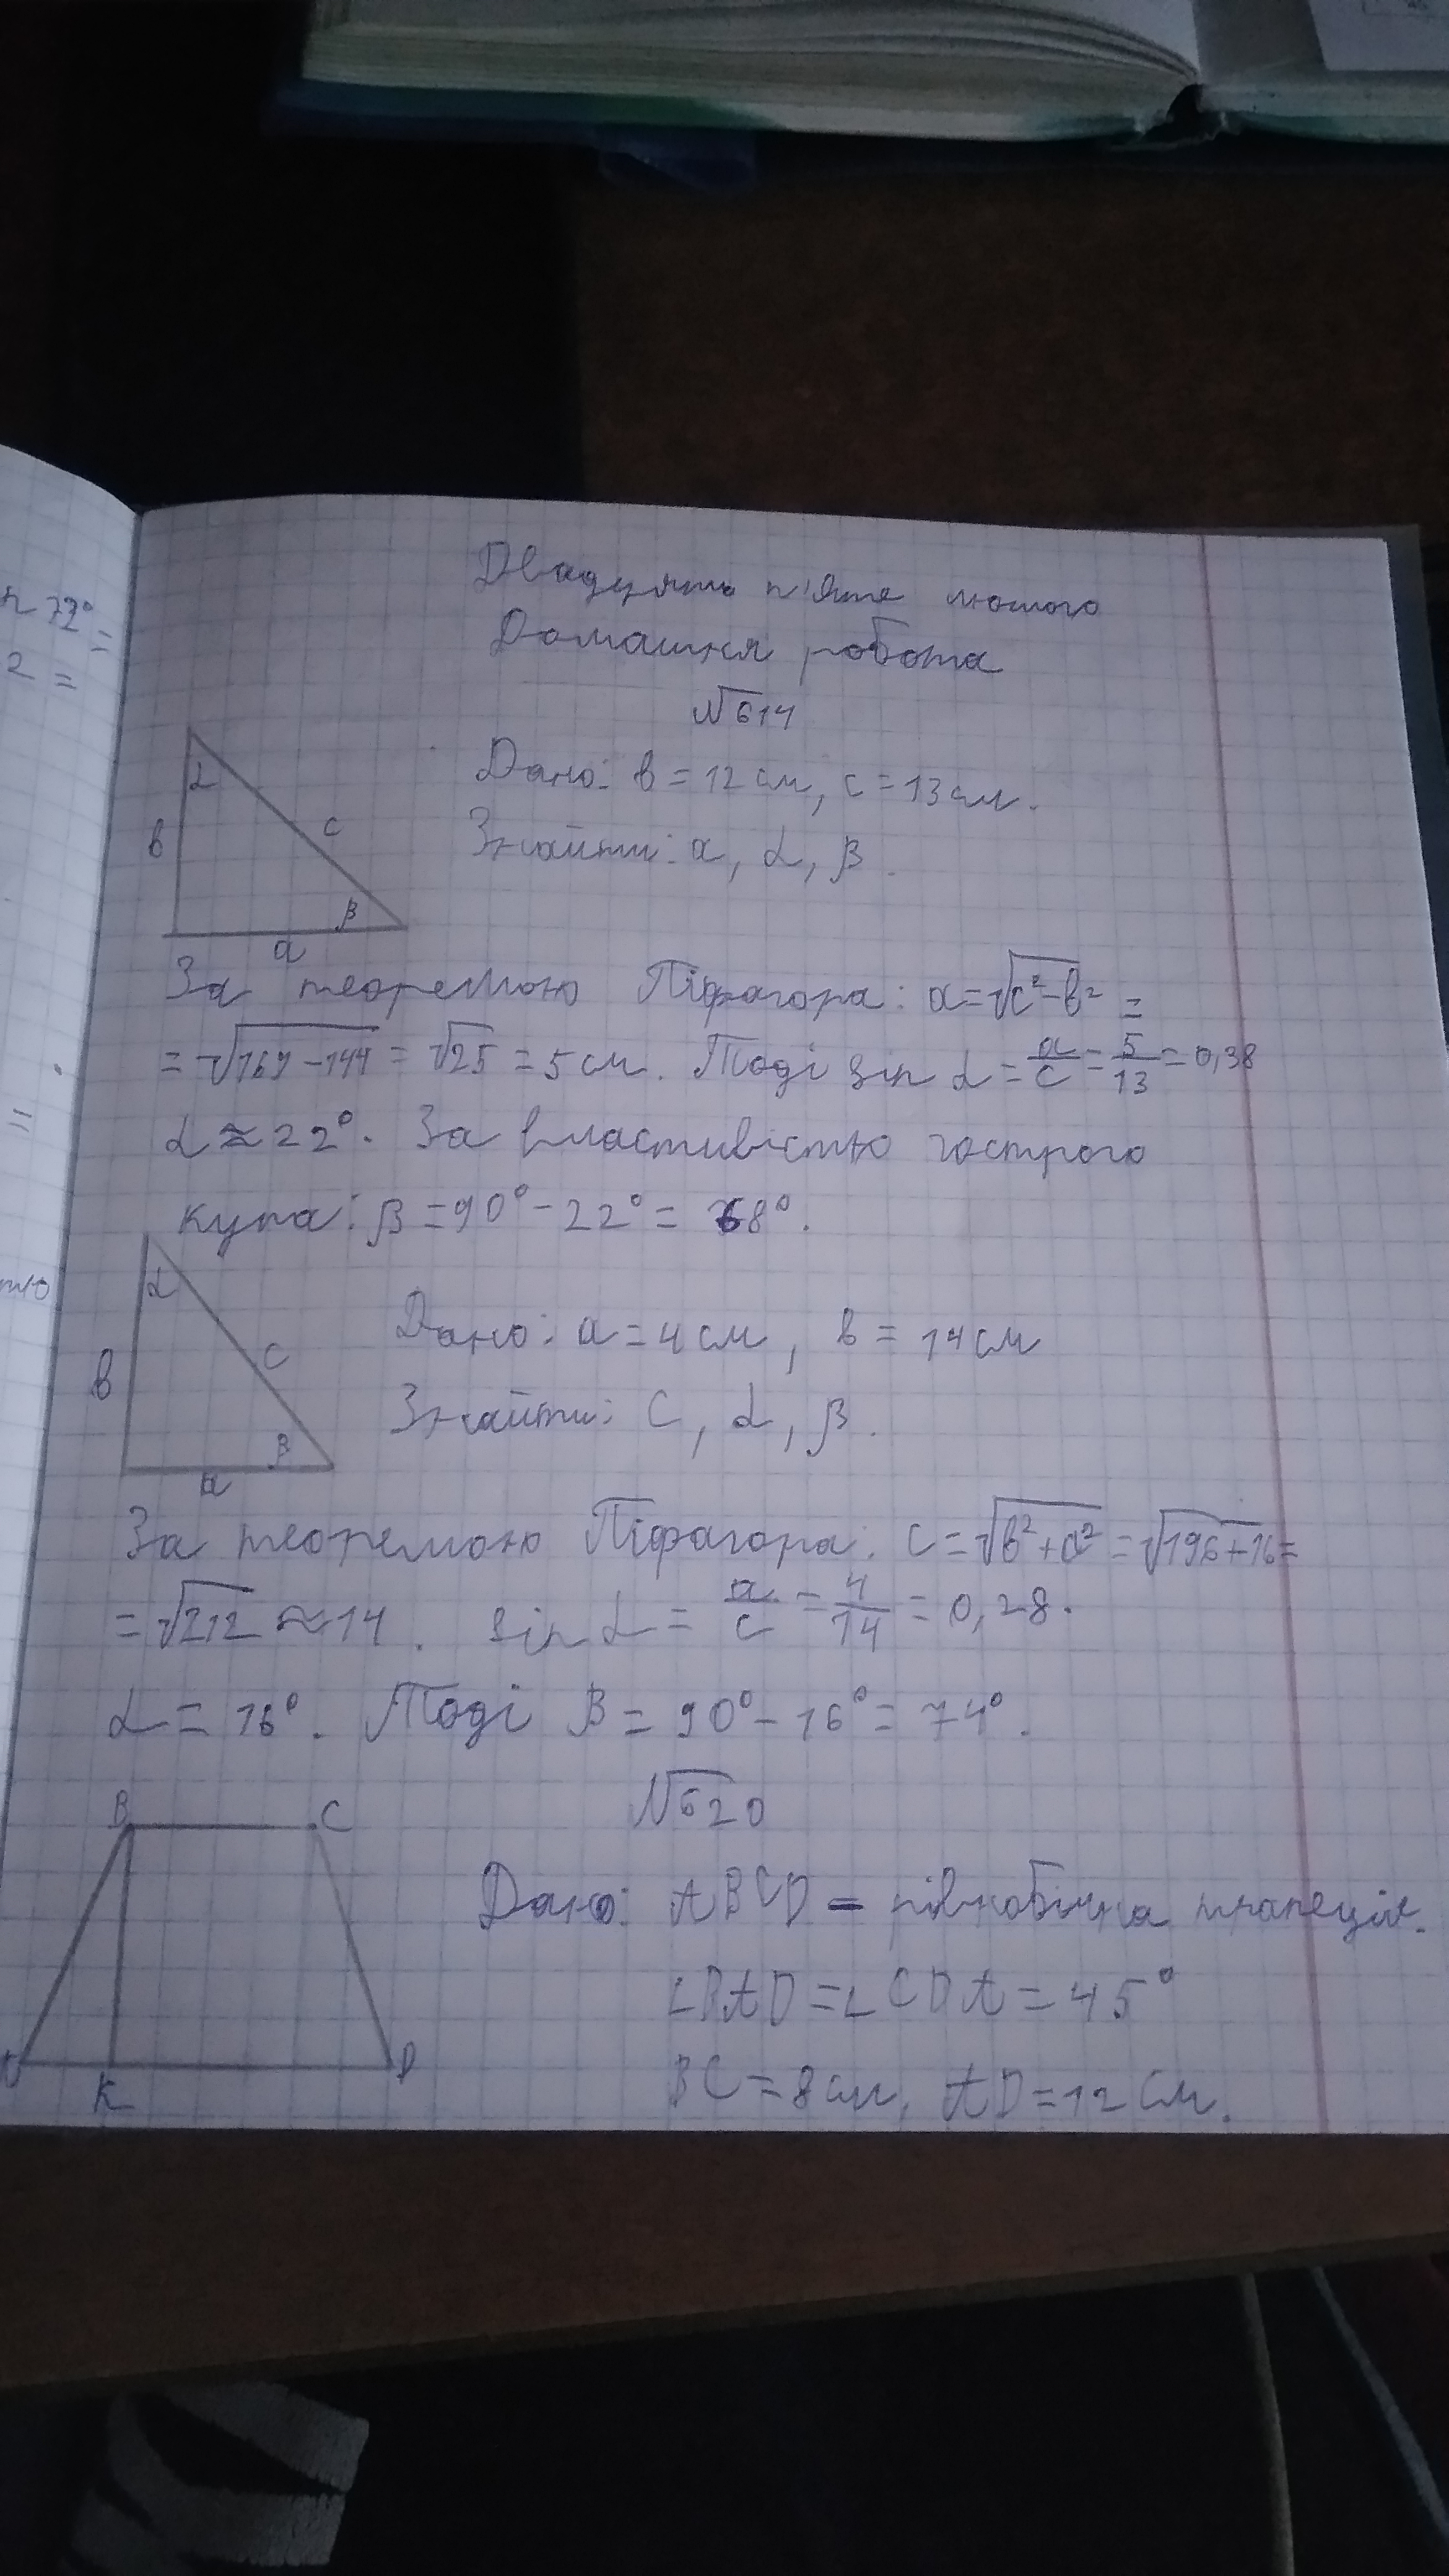 n 72° =
2 =
=
тю
Двадцять п'яте лютого
Домашня робота
№614
α
b
c
β
a
Дано: b = 12 см, c = 13 см.
Знайти: a, α, β.
За теоремою Піфагора: a = √c² - b² =
= √169 - 144 = √25 = 5 см. Тоді sin α = a/c = 5/13 = 0,38
α ≈ 22°. За властивістю гострого
кута: β = 90° - 22° = 68°.
α
b
c
β
a
Дано: a = 4 см, b = 14 см
Знайти: c, α, β.
За теоремою Піфагора: c = √b² + a² = √196 + 16 =
= √212 ≈ 14. sin α = a/c = 4/14 = 0,28.
α = 16°. Тоді β = 90° - 16° = 74°.
№620
B C
K D
Дано: ABCD - рівнобічна трапеція.
∠BAD = ∠CDA = 45°
BC = 8 см, AD = 12 см.